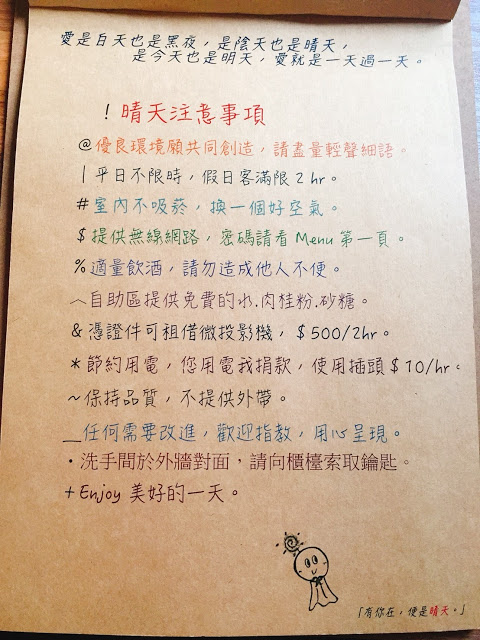 愛是白天也是黑夜，是陰天也是晴天，
是今天也是明天，愛就是一天過一天。
！晴天注意事項
@優良環境願共同創造，請盡量輕聲細語。
|平日不限時，假日客滿限2hr。
#室內不吸菸，換一個好空氣。
$提供無線網路，密碼請看Menu第一頁。
%適量飲酒，請勿造成他人不便。
︿自助區提供免費的水.肉桂粉.砂糖。
&憑證件可租借微投影機，$500/2hr。
*節約用電，您用電我捐款，使用插頭$10/hr。
~保持品質，不提供外帶。
＿任何需要改進，歡迎指教，用心呈現。
・洗手間於外牆對面，請向櫃檯索取鑰匙。
+Enjoy 美好的一天。
「有你在，便是晴天。」